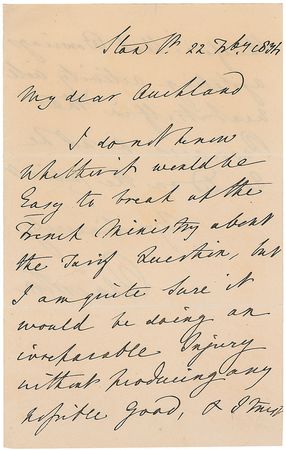 Stan St 22 Feby 1834
My dear Auckland
I do not know
whether it would be
Easy to break up the
French Ministry about
the Tariff Question, but
I am quite sure it
would be doing an
irreparable Injury
without producing any
possible Good, & I trust